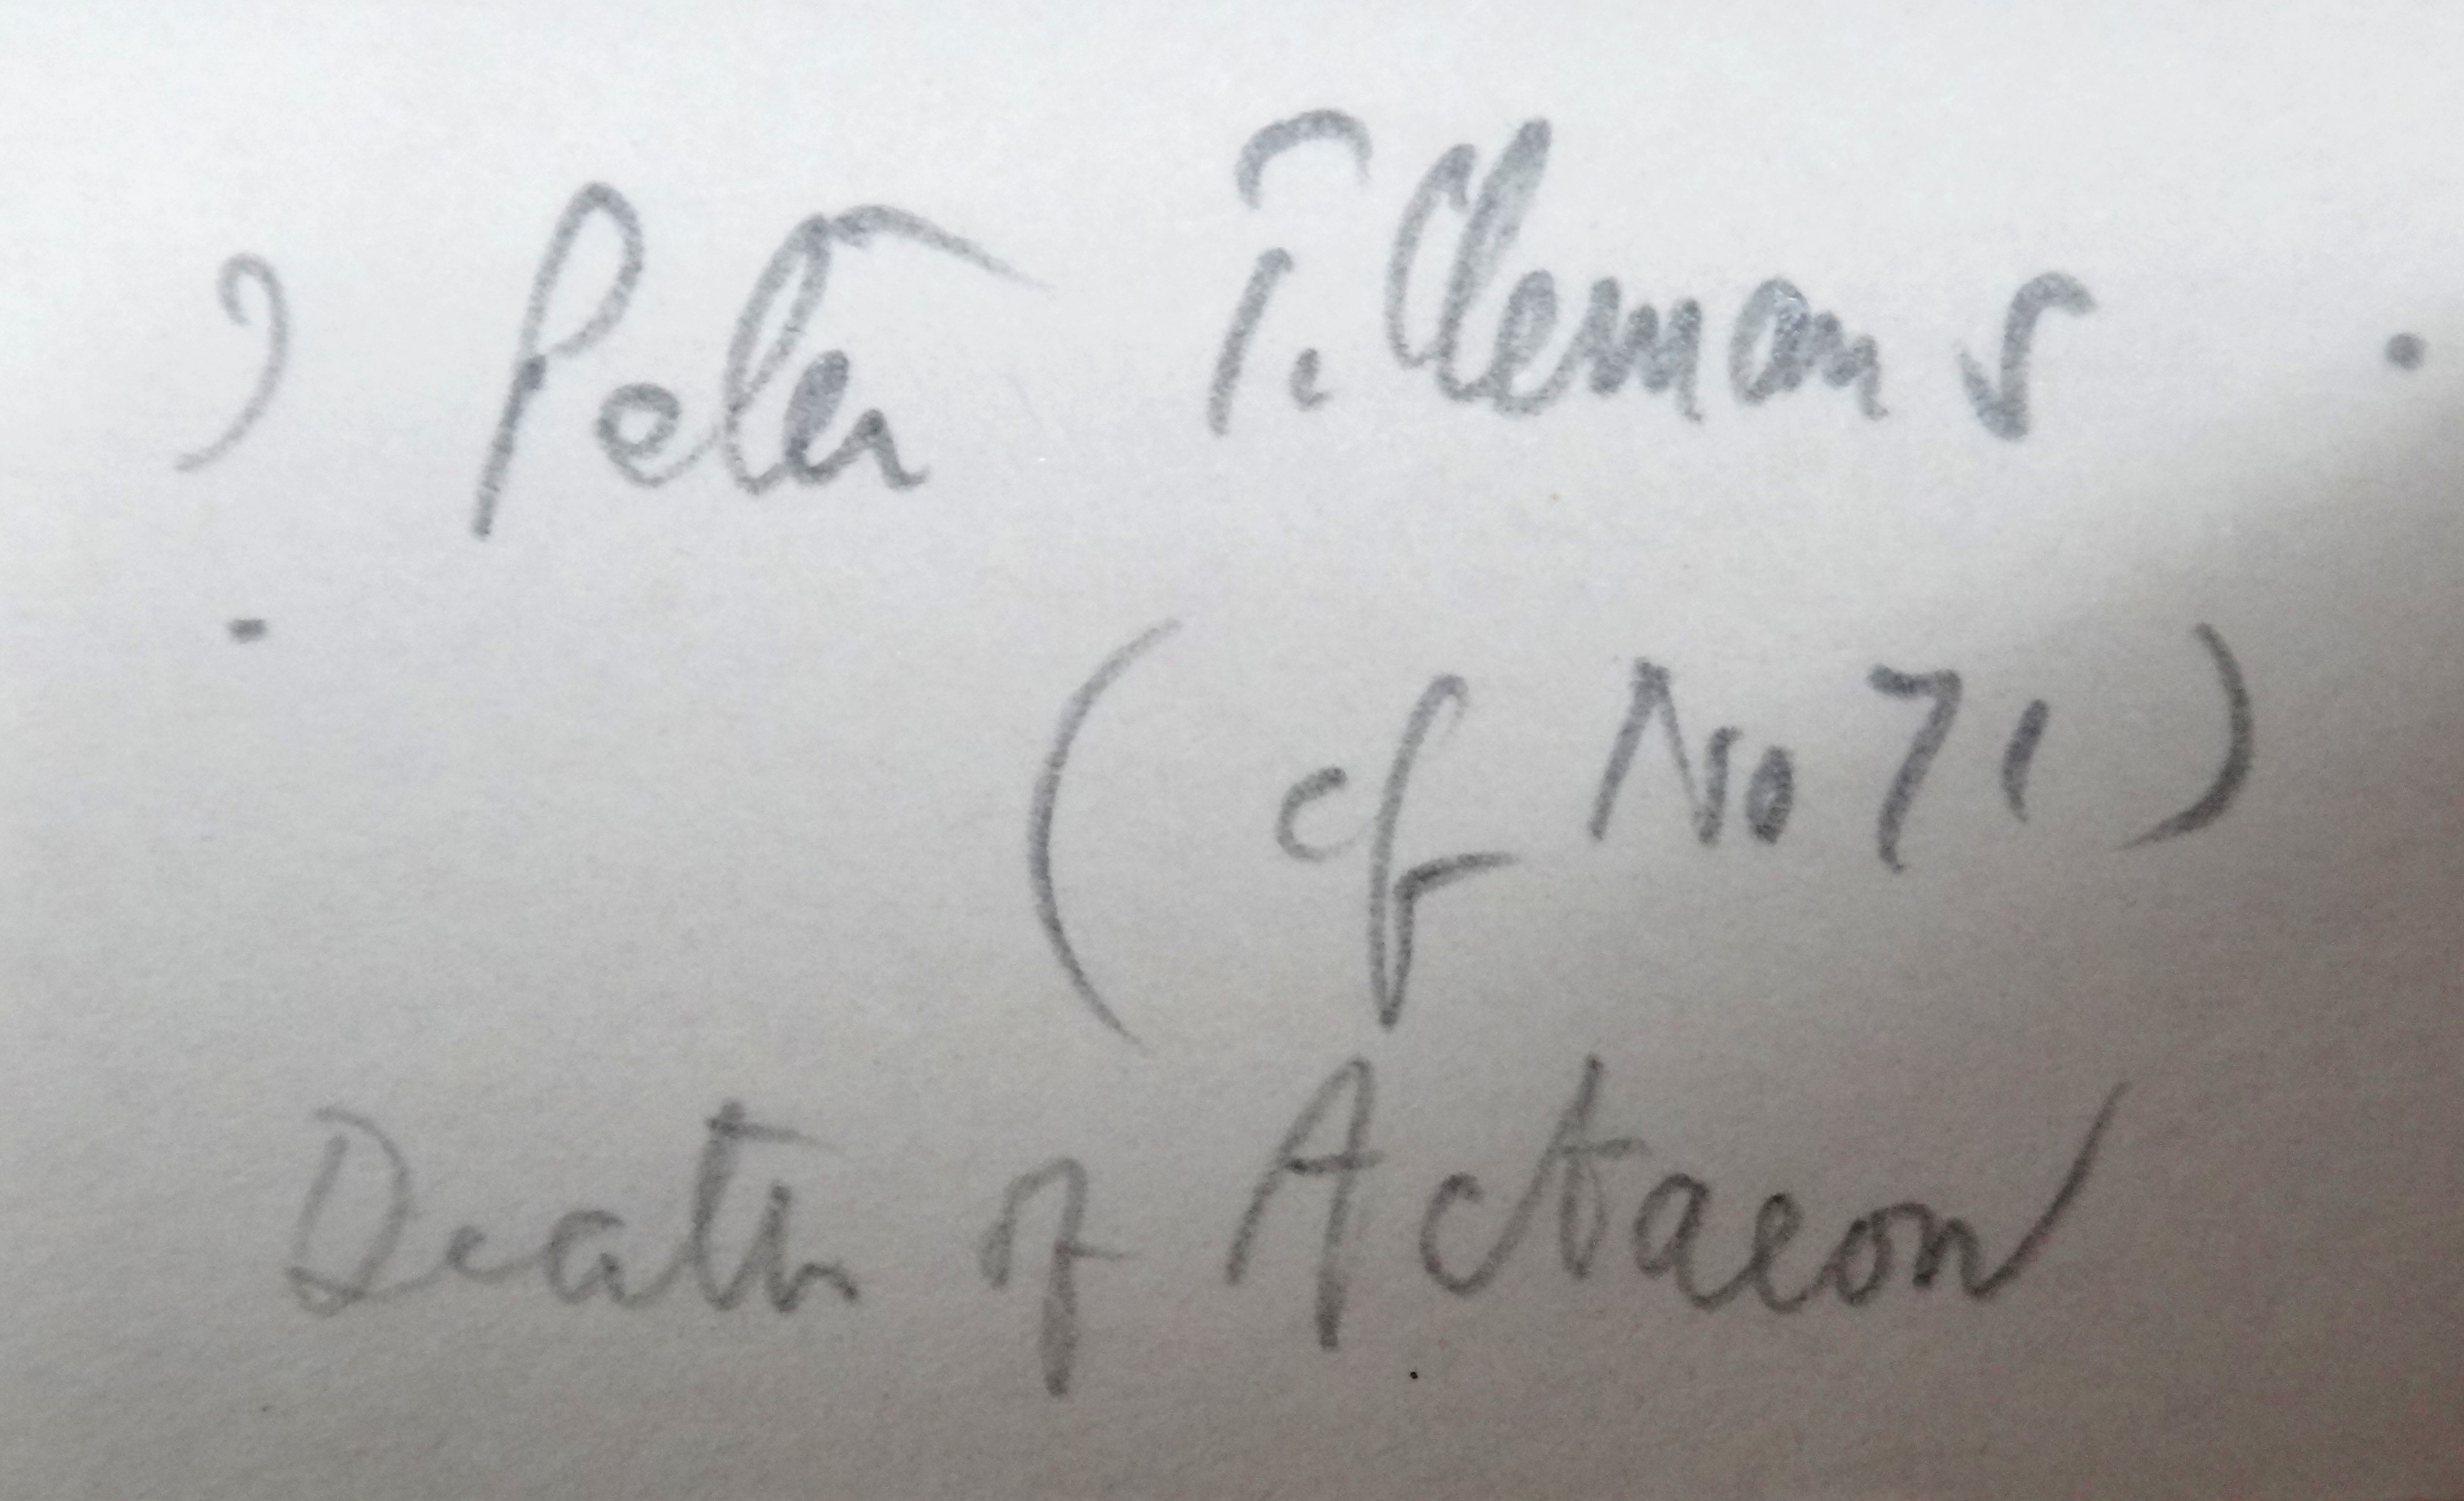 ? Peter Tillemans.
(cf No 71)
Death of Actaeon